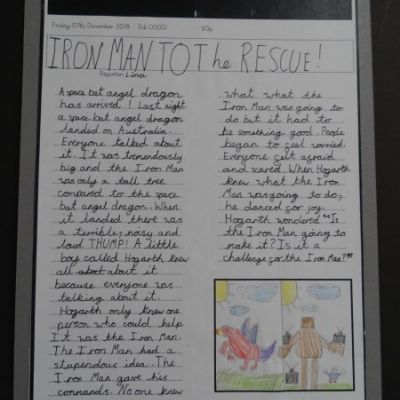 Friday 07th December 2018 Ed: 00001 60p
IRON MAN TO The RESCUE!
Reporter: Lina
A space bat angel dragon
has arrived! Last night
a space bat angel dragon
landed on Australia.
Everyone talked about
it. It was tremendously
big and the Iron Man
was only a tall tree
compared to the space
bat angel dragon. When
it landed there was
a terrible, noisy and
loud THUMP! A little
boy called Hogarth knew
all about about it
because everyone was
talking about it.
Hogarth only knew one
person who could help
It was the Iron Man.
The Iron Man had a
stupendous idea. The
Iron Man gave his
commands. No one knew
what what the
Iron Man was going to
do but it had to
be something good. People
began to feel worried.
Everyone felt afraid
and scared. When Hogarth
knew what the Iron
Man was going to do,
he danced for joy.
Hogarth wondered "Is
the Iron Man going to
make it? Is it a
challenge for the Iron Man?"